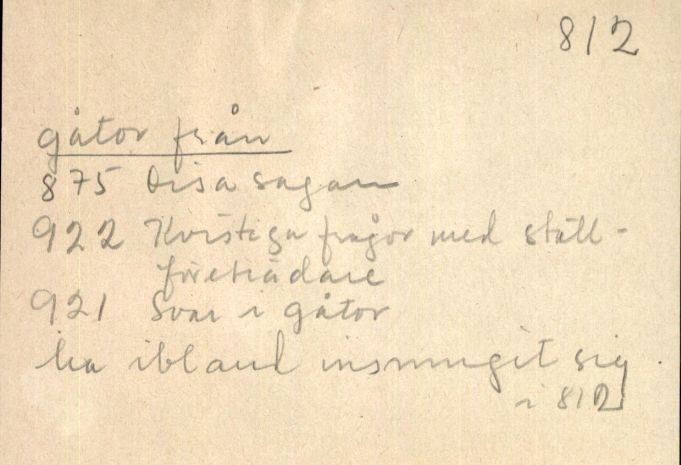 812
gåtor från
875 Disa sagan
922 Kvistiga frågor med ställ-
företrädare
921 Svar i gåtor
ha ibland insmugit sig
i 812